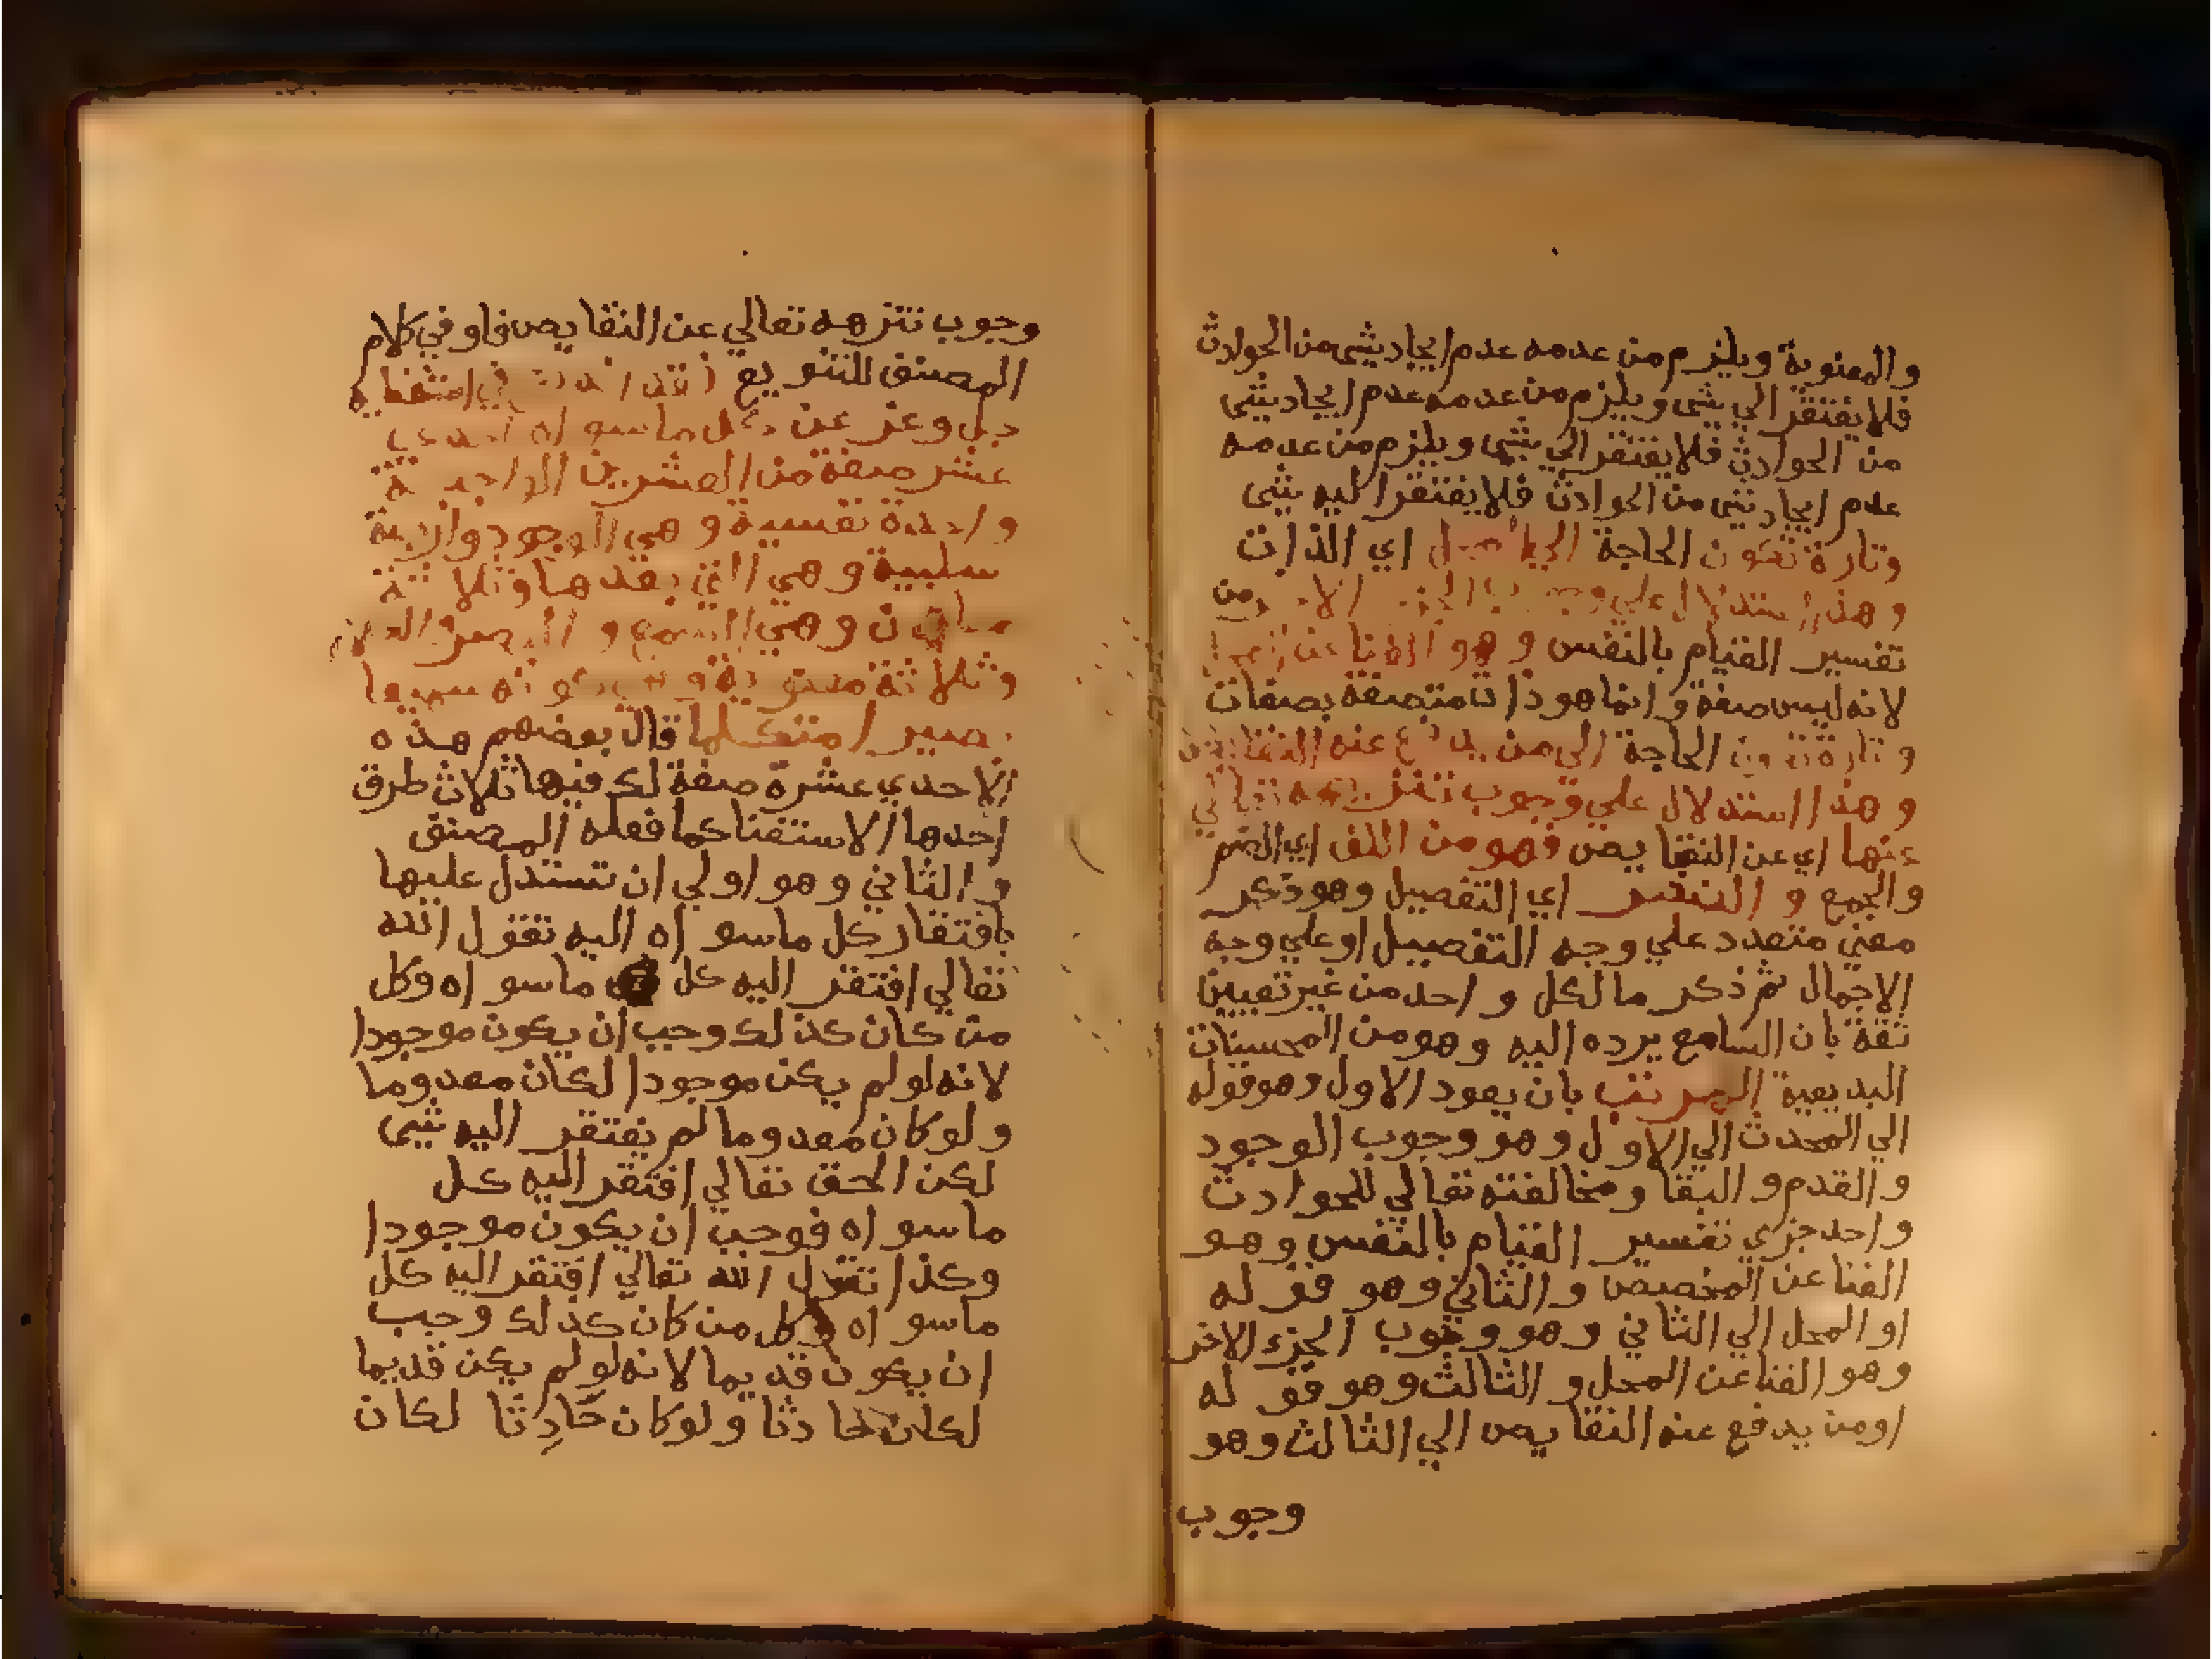 والمعنوية ويلزم من عدمه عدم ايجاد شيى من الحوادث
فلا يفتقر الي شيى ويلزم من عدمه عدم ايجاد شيى
من الحوادث فلا يفتقر الي شيى ويلزم من عدمه
عدم ايجاد شيى من الحوادث فلا يفتقر اليه شيى
وتارة تكون الحاجة الي المحل اي الذات
وهذا استدلال علي وجوب الجزء الاخر من
تفسير القيام بالنفس وهو الغنا عن المحل
لانه ليس صفة وانما هو ذات متصفة بصفات
وتارة تكون الحاجة الي من يدفع عنه النقايص
وهذا استدلال علي وجوب تنزهه تعالي
عنها اي عن النقايص فهو من اللف اي الضم
والجمع و النشر اي التفصيل وهو ذكر
معني متعدد علي وجه التفصيل او علي وجه
الاجمال ثم ذكر ما لكل واحد من غير تعيين
ثقة بان السامع يرده اليه وهو من المحسينات
البديعية المرتب بان يعود الاول وهو قوله
الي المحدث الي الاول وهو وجوب الوجود
والقدم والبقا ومخالفته تعالي للحوادث
واحد جزي تفسير القيام بالنفس وهو
الغنا عن المخصص والثاني وهو قوله
او المحل الي الثاني وهو وجوب الجزء الاخر
وهو الغنا عن المحل والثالث وهو قوله
اومن يدفع عنه النقايص الي الثالث وهو
وجوب
وجوب تنزهه تعالي عن النقايص فاو في كلام
المصنف للتنويع في استغنايه
جل وعز عن كل ما سواه احدي
عشر صفة من العشرين الواجبة
واحدة نفسية وهي الوجود واربعة
سلبية وهي التي بعدها وثلاثة
معان وهي السمع والبصر والكلام
وثلاثة معنوية وهي كونه سميعا
بصيرا متكلما قال بعضهم هذه
الاحدي عشرة صفة لك فيها ثلاث طرق
احدها الاستغنا كما فعله المصنف
والثاني وهو اولي ان تستدل عليها
بافتقار كل ما سواه اليه تقول الله
تعالي افتقر اليه كل ما سواه وكل
من كان كذلك وجب ان يكون موجودا
لانه لو لم يكن موجودا لكان معدوما
ولو كان معدوما لم يفتقر اليه شيى
لكن الحق تعالي افتقر اليه كل
ما سواه فوجب ان يكون موجودا
وكذا تقول الله تعالي افتقر اليه كل
ما سواه وكل من كان كذلك وجب
ان يكون قديما لانه لو لم يكن قديما
لكان حادثا ولو كان حَادِثا لكان